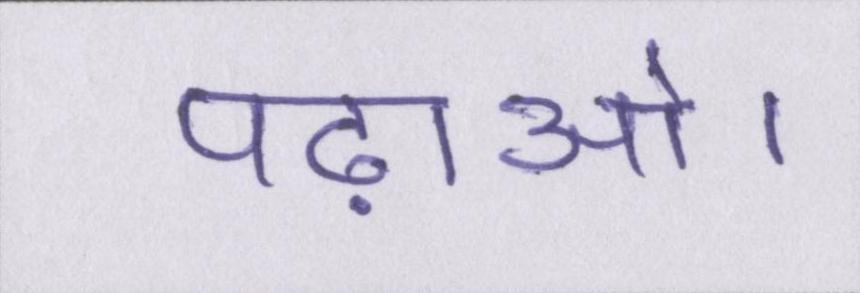 पढ़ाओ।